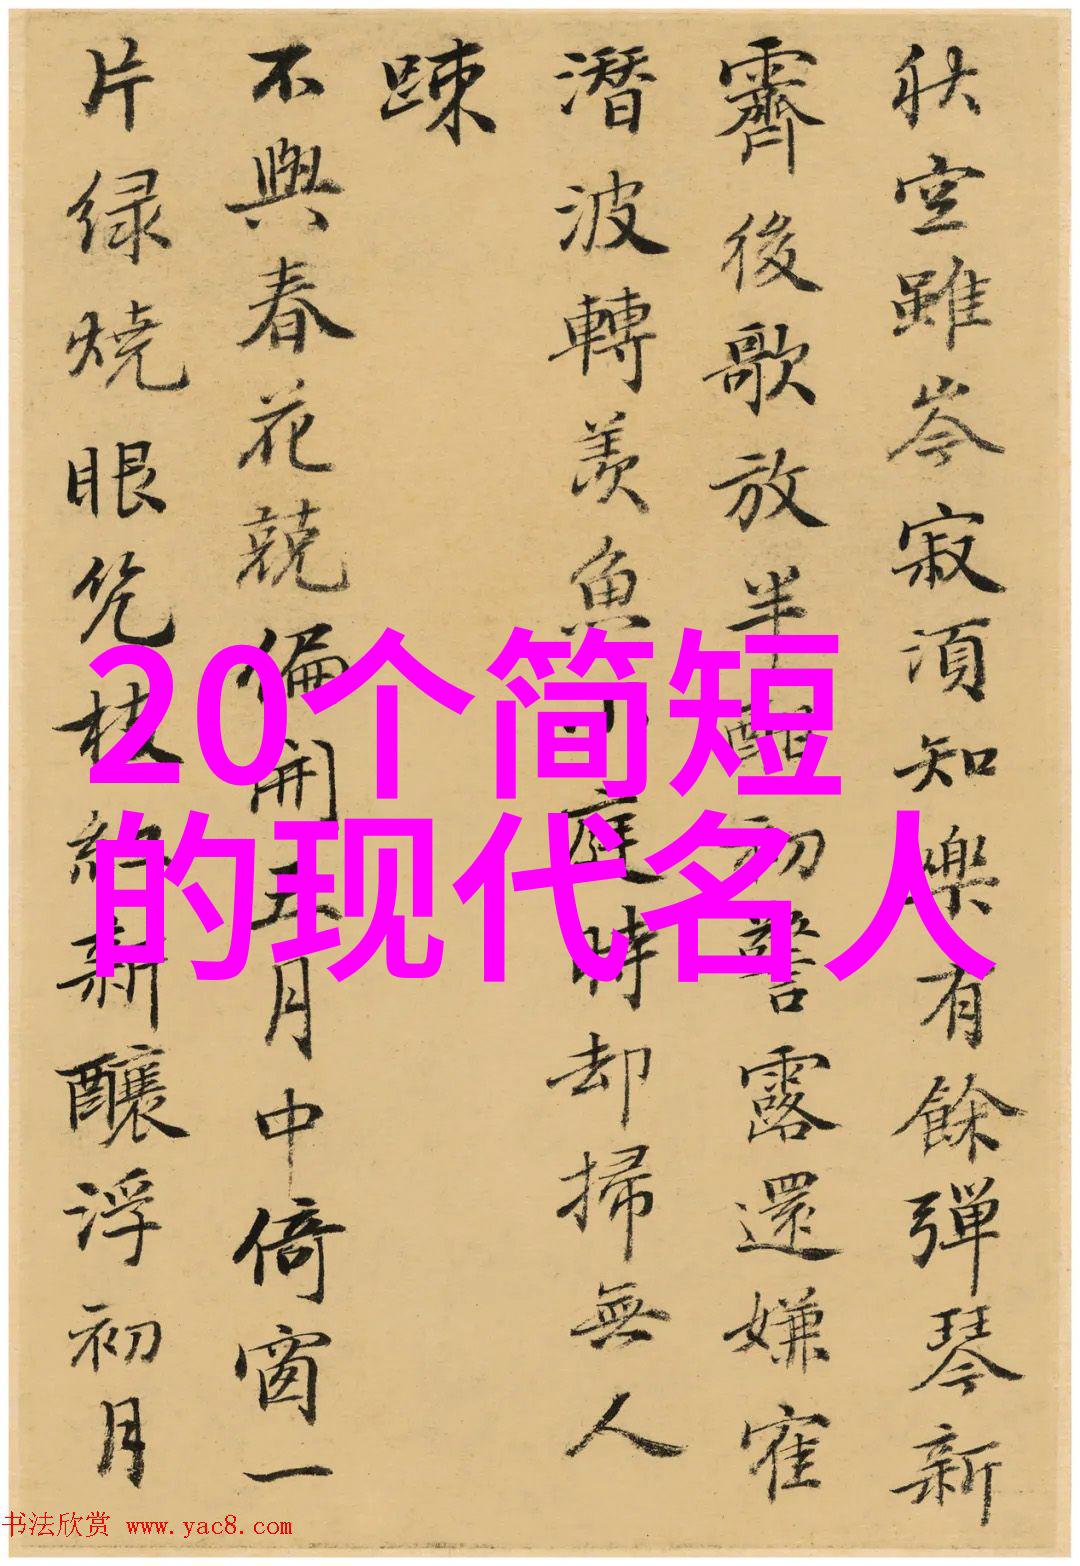 秋空雖岑寂湏知樂有餘彈琴新
霽後歌放半酣初警露還嫌寉
潛波轉羨魚庭時却掃無人
踈
不與春花競偏開五月中倚窗一
片绿燒眼枝紅新釀浮初月
20个简短
的现代名人
书法欣赏 www.yac8.com